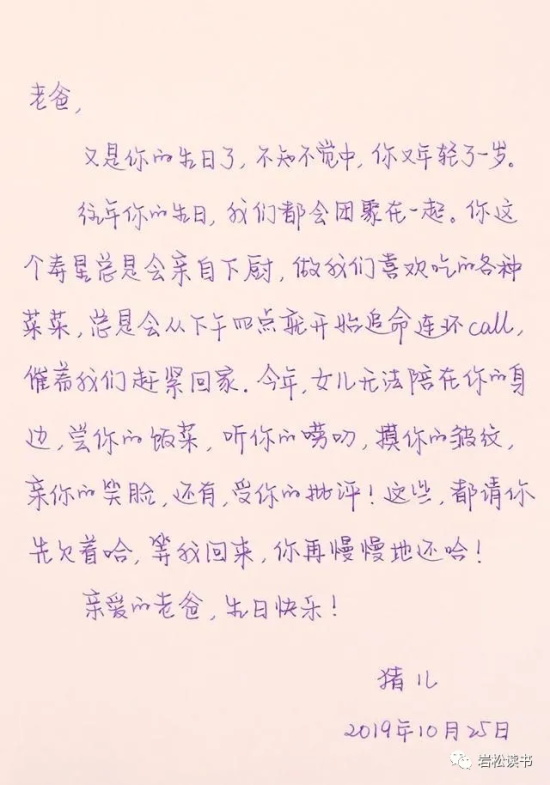 老爸，
又是你的生日了，不知不觉中，你又年轻了一岁。
往年你的生日，我们都会团聚在一起。你这
个寿星总是会亲自下厨，做我们喜欢吃的各种
菜菜，总是会从下午四点就开始追命连环call，
催着我们赶紧回家。今年，女儿无法陪在你的身
边，尝你的饭菜，听你的唠叨，摸你的皱纹，
亲你的笑脸，还有，受你的批评！这些，都请你
先欠着哈，等我回来，你再慢慢地还哈！
亲爱的老爸，生日快乐！
猪儿
2019年10月25日
岩松读书